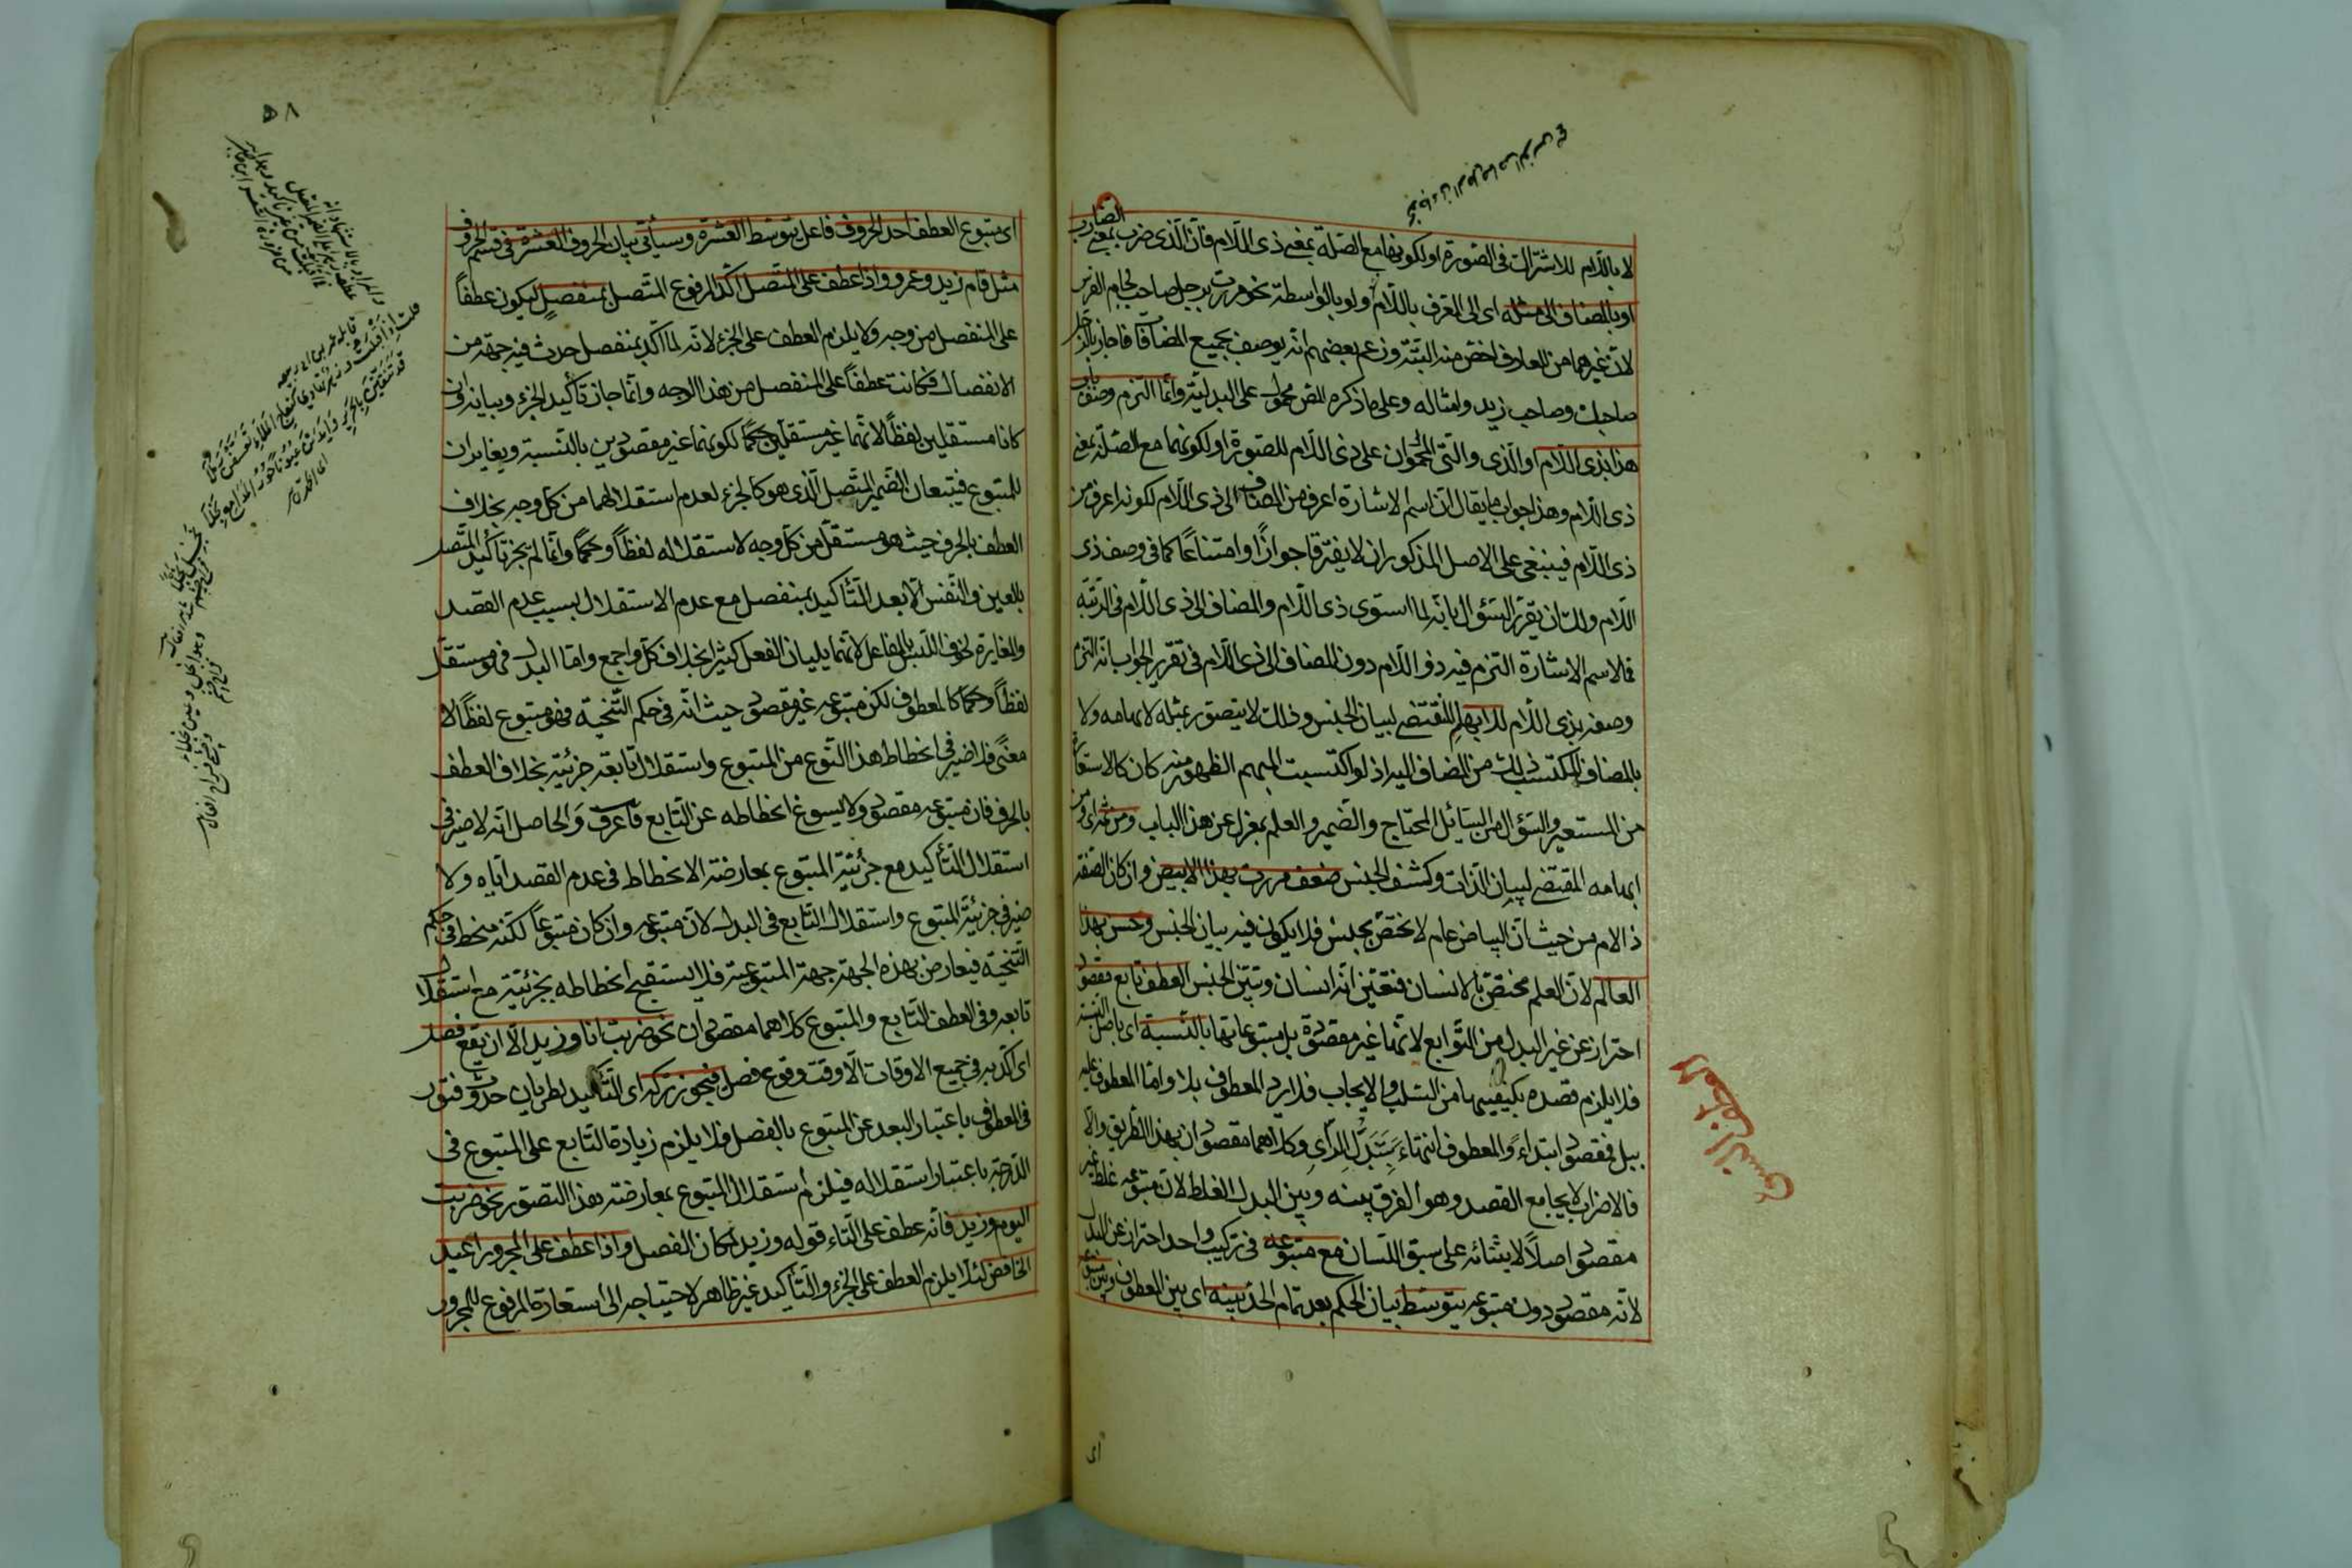 لا باللام للاشتراك فى الصورة او لكونها مع الصلة بمعنى ذى اللام فان الذى ضرب بمعنى الضارب
او بالمضاف الى مثله اى الى المعرف باللام ولو بالواسطة نحو مررت برجل صاحب لجام الفرس
لان غيرهما من المعارف اخص منه البتة وزعم بعضهم انه يوصف بجميع المضافات فاجاز بالرجل
صاحبك وصاحب زيد وامثاله وعلى ما ذكره المص محمول على البدلية وانما التزم وصف باب
هذا بذى اللام او الذى والتى المحمولان على ذى اللام للصورة او لكونهما مع الصلة بمعنى
ذى اللام وهذا جواب ما يقال ان اسم الاشارة اعرف من المضاف الى ذى اللام لكونه اعرف من
ذى اللام فينبغى على الاصل المذكور ان لا يفترقا جوازا او امتناعا كما فى وصف ذى
اللام ولك ان تقرر السؤال بانه لما استوى ذى اللام والمضاف الى ذى اللام فى الرتبة
فالاسم الاشارة التزم فيه ذو اللام دون المضاف الى ذى اللام فى تقرير الجواب انه التزم
وصفه بذى اللام للابهام المقتضى لبيان الجنس وذلك لا يتصور بمثله لابهامه ولا
بالمضاف المكتسب ذلك من المضاف اليه اذ لو اكتسبت المبهم الظهور منه كان كالاستعارة
من المستعير والسؤال من السائل المحتاج والضمير والعلم بمعزل عن هذا الباب ومن ثم اى ومن
ابهامه المقتضى لبيان الذات وكشف الجنس ضعف مررت بهذا الابيض وان كان الصفة
ذا لام من حيث ان البياض عام لا يختص بجنس فلا يكون فيه بيان الجنس وحسن بهذا
العالم لان العلم مختص بالانسان فتعين انه انسان وتبين الجنس العطف تابع مقصود
احتراز عن غير البدل من التوابع لانها غير مقصودة بل متبوعاتها بالنسبة اى باصل النسبة
فلا يلزم قصده بكيفيتها من السلب والايجاب فلا يرد المعطوف بلا واما المعطوف عليه
ببل فمقصود ابتداء والمعطوف انتهاء بتبدل الرأى وكلاهما مقصودان بهذا الطريق والا
فالاضراب لا يجامع القصد وهو الفرق بينه وبين البدل الغلط لان متبوعه غلط غير
مقصود اصلا لابتنائه على سبق اللسان مع متبوعه فى تركيب واحد احتراز عن البدل
لانه مقصود دون متبوعه يتوسط بيان الحكم بعد تمام الحد بينه اى بين المعطوف وبين متبوعه
اى
عطف النسق
٥٨
اى متبوع العطف احد الحروف فاعل يتوسط العشرة وسيأتى بيان الحروف العشرة فى قسم الحروف
مثل قام زيد وعمرو واذا عطف على المتصل اكد المرفوع المتصل بمنفصل ليكون عطفا
على المنفصل من وجه ولا يلزم العطف على الجزء لانه لما اكد بمنفصل حدث فيه جهة من
الانفصال فكانت عطفا على المنفصل من هذا الوجه وانما جاز تأكيد الجزء وبيانه ان
كانا مستقلين لفظا لانهما غير مستقلين حكما لكونهما غير مقصودين بالنسبة ويغايران
للمتبوع فيتبعان الضمير المتصل الذى هو كالجزء لعدم استقلالهما من كل وجه بخلاف
العطف بالحرف حيث هو مستقل من كل وجه لاستقلاله لفظا وحكما وانما لم يجز تأكيد المتصل
بالعين والنفس الا بعد التأكيد بمنفصل مع عدم الاستقلال بسبب عدم القصد
والمغايرة لخوف اللبس بالفاعل لانهما يليان الفعل كثيرا بخلاف كل واجمع واما البدل فهو مستقل
لفظا وحكما كالمعطوف لكن متبوعه غير مقصود حيث انه فى حكم التنحية فهو متبوع لفظا لا
معنى فلا ضير فى انحطاط هذا النوع من المتبوع واستقلال تابعه جزئيته بخلاف العطف
بالحرف فان متبوعه مقصود ولا يسوغ انحطاطه عن التابع فاعرف والحاصل انه لا ضير فى
استقلال التأكيد مع جزئية المتبوع بمعارضة الانحطاط فى عدم القصد اياه ولا
ضير فى جزئية المتبوع واستقلال التابع فى البدل لان متبوعه وان كان متبوعا لكنه منحط فى حكم
التنحية فيعارض بهذه الجهة جهة المتبوعية فلا يستقبح انحطاطه بجزئيته مع استقلال
تابعه وفى العطف التابع والمتبوع كلاهما مقصودان نحو ضربت انا وزيد الا ان يقع فصل
اى اكد به فى جميع الاوقات الا وقت وقوع فصل فيجوز تركه اى التأكيد لطريان حدوث فتور
فى المعطوف باعتبار البعد عن المتبوع بالفصل فلا يلزم زيادة التابع على المتبوع فى
الدرجة باعتبار استقلاله فيلزم استقلال المتبوع بمعارضة هذا التصور نحو ضربت
اليوم وزيد فانه عطف على التاء قوله وزيد لمكان الفصل واذا عطف على المجرور اعيد
الخافض لئلا يلزم العطف على الجزء والتأكيد غير ظاهر لاحتياجه الى استعارة المرفوع للمجرور